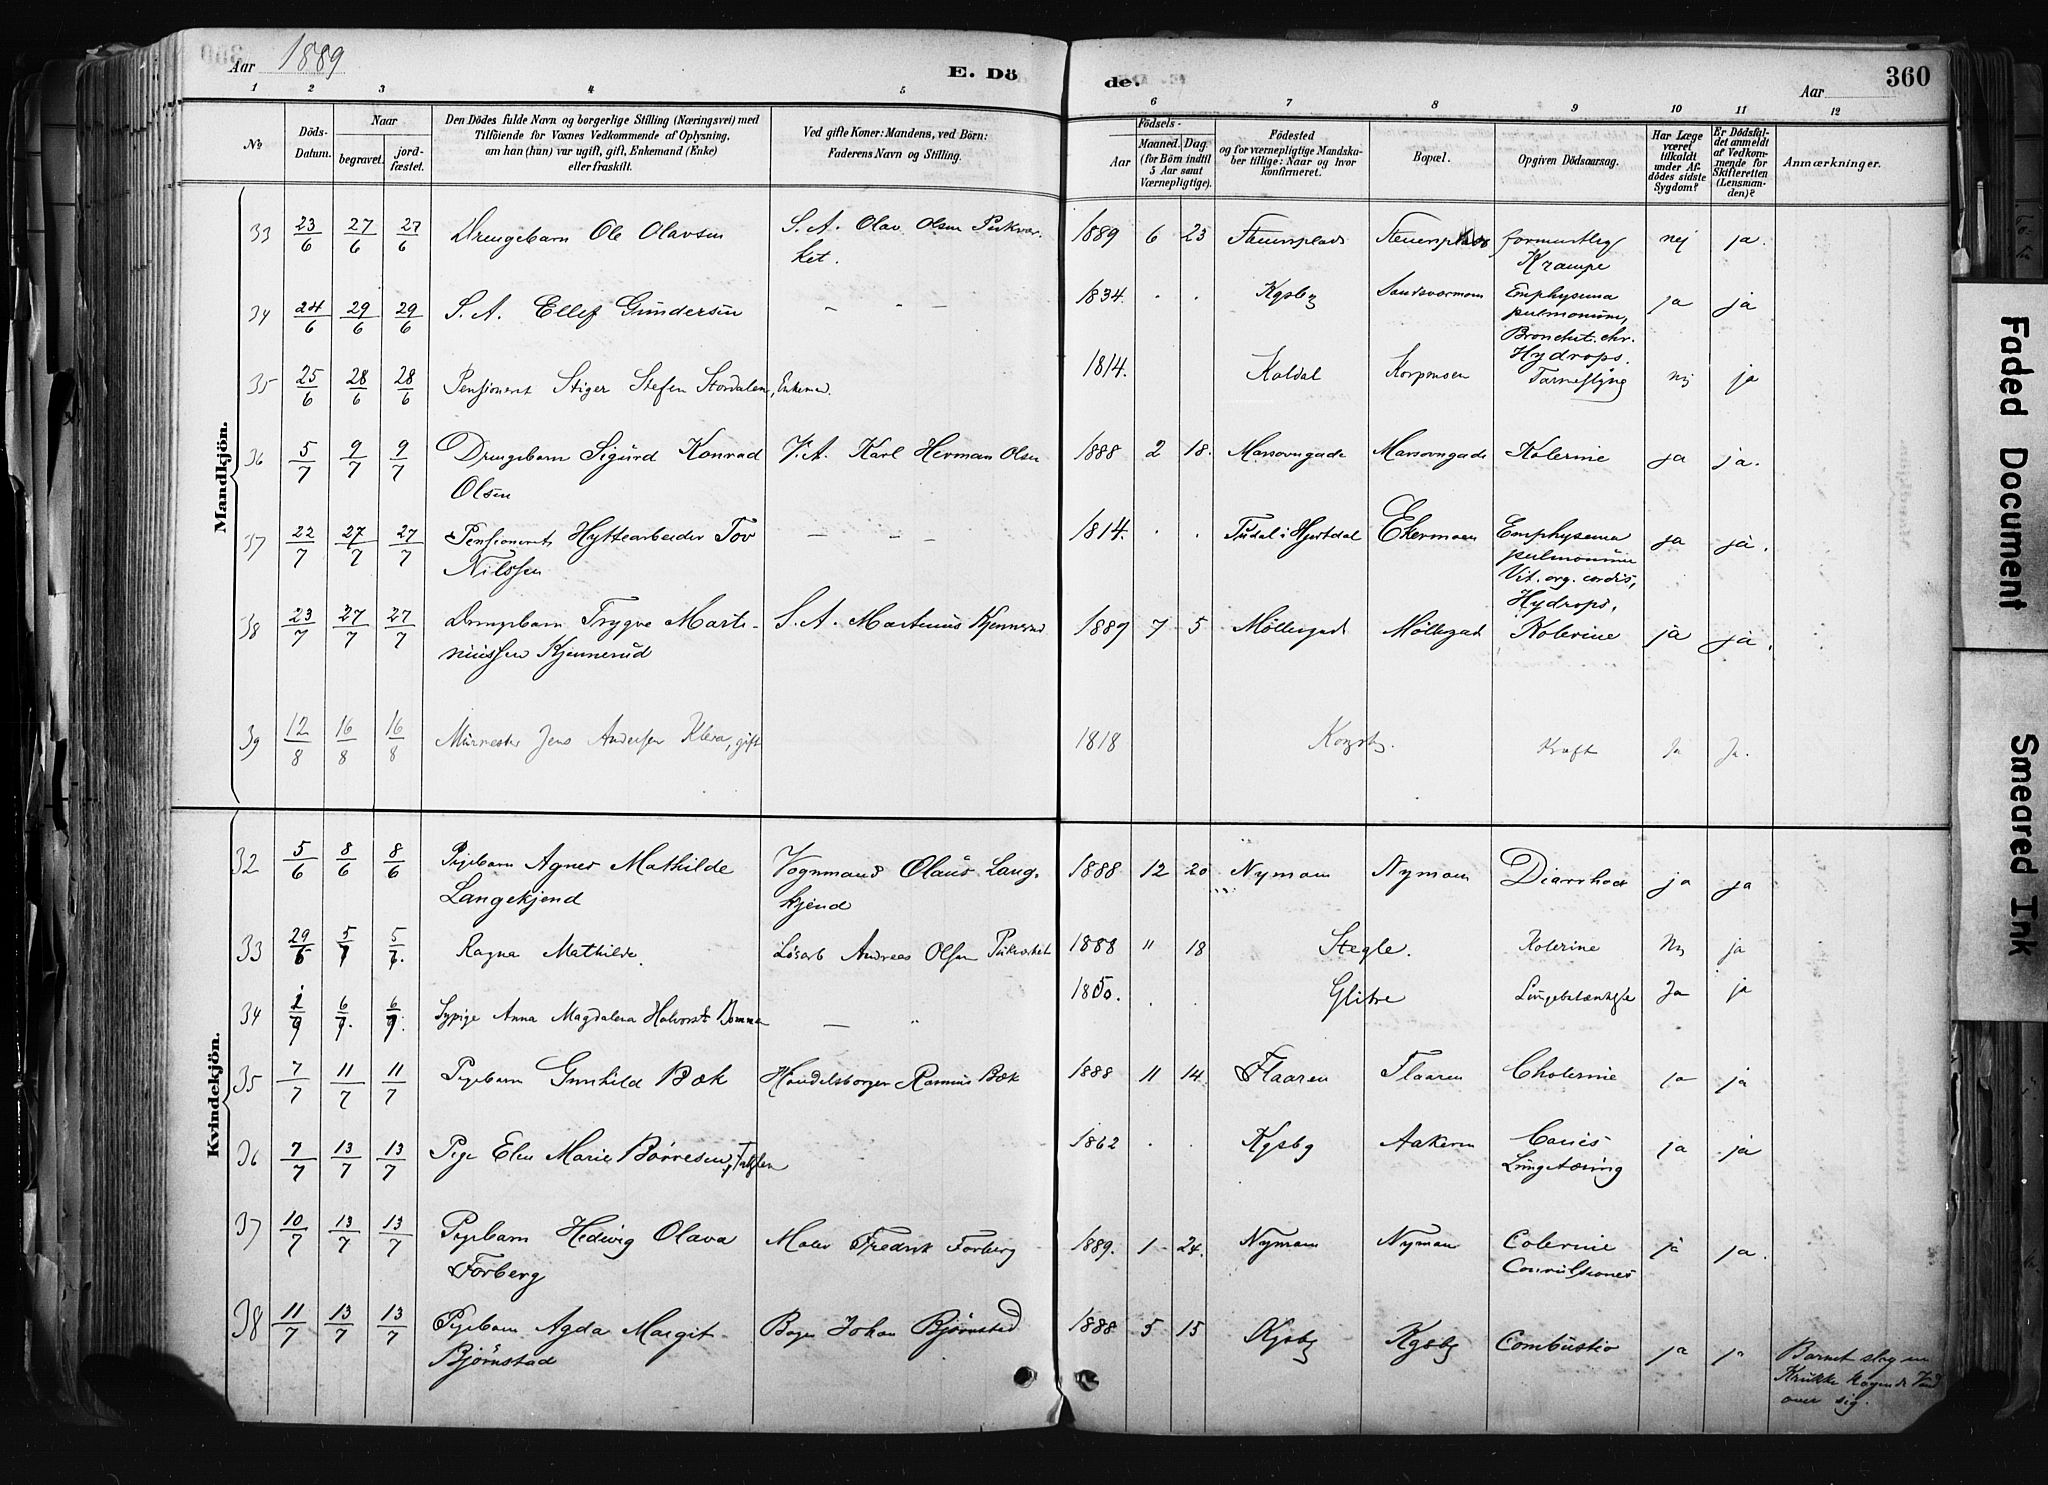 Aar 1889
E. Dö
de.
Aar
360
1 2 3 4 5 6 7 8 9 10 11 12
No
Döds-
Datum.
Naar
begravet.
jord-
fæstet.
Den Dödes fulde Navn og borgerlige Stilling (Næringsvei) med
Tilföiende for Voxnes Vedkommende af Oplysning,
om han (hun) var ugift, gift, Enkemand (Enke)
eller fraskilt.
Ved gifte Koner: Mandens, ved Börn:
Faderens Navn og Stilling.
Födsels-
Aar
Maaned. Dag.
(for Börn indtil
5 Aar samt
Værnepligtige).
Födested
og for værnepligtige Mandska-
ber tillige: Naar og hvor
konfirmeret.
Bopæl.
Opgiven Dödsaarsag.
Har Læge
været
tilkaldt
under Af-
dödes sidste
Sygdom?
Er Dödsfal-
det anmeldt
af Vedkom-
mende for
Skifteretten
(Lensman-
den)?
Anmærkninger.
Mandkjön.
33 23/6 27/6 27/6 Drengebarn Ole Olavsen S. A. Olav Olsen 1889 6 23 nej ja.
Krampe
34 24/6 29/6 29/6 S. A. Ellef Gundersen – – – 1834 . . Kgsby Sandsværmoen Emphysema ja ja
pulmonum,
Bronchit. chr.
Hydrops.
35 25/6 28/6 28/6 Pensioneret Stiger Stefen Stordalen, Enkemd. 1814. Koldal nej ja
36 5/7 9/7 9/7 Drengebarn Sigurd Konrad V. A. Karl Herman Olsen 1888 2 18. Marsovngade Marsovngade Kolerine ja ja.
Olsen
37 22/7 27/7 27/7 Pensioneret Hyttearbeider Tov – – – 1814. . . Tudal i Hjertdal Ekermoen Emphysema ja ja.
Nilssen pulmonum
Vit. org. cordis,
Hydrops,
38 23/7 27/7 27/7 Drengebarn Trygve Marti- S. A. Martinius Kjennerud 1889 7 5 Möllergad Möllergad Kolerine ja ja.
niussen Kjennerud
39 12/8 16/8 16/8 Murmester Jens Andersen Kleva, gift 1818 Kongsbg. Kræft Ja Ja.
Kvindekjön.
32 5/6 8/6 8/6 Pigebarn Agnes Mathilde Vognmand Olaus Lang- 1888 12 20 Nymoen Nymoen Diarrhoe ja ja
Langekjend kjend
33 29/6 5/7 5/7. Ragna Mathilde. Løsarb Andreas Olsen 1888 11 18 Stegle. Kolerine Nej ja
34 6/7. Sypige Anna Magdalena Halvorsd. Bomma – „ 1850. . . Glitre Lungebetændelse Ja ja
35 7/7 11/7 11/7 Pigebarn Gunhild Bæk Handelsborger Rasmus Bæk 1888 11 14. Flaaren Flaaren Cholerine ja ja
36 7/7 13/7 13/7 Pige Elen Marie Børresen, 1862 . . Kgsbg Aakeren Caries ja ja
Lungetæring
37 10/7 13/7 13/7 Pigebarn Hedvig Olava Maler Fredrik Forberg 1889. 1 24. Nymoen Nymoen Colerine ja ja.
Forberg Convulsiones
38 11/7 13/7 13/7 Pigebarn Agda Margit Bager Johan Bjørnstad 1888 5 15 Kgsbg Kgsbg Combustio ja ja Barnet slog en
Bjørnstad Krukke kogende Vand
over sig.
Faded Document
Smeared Ink